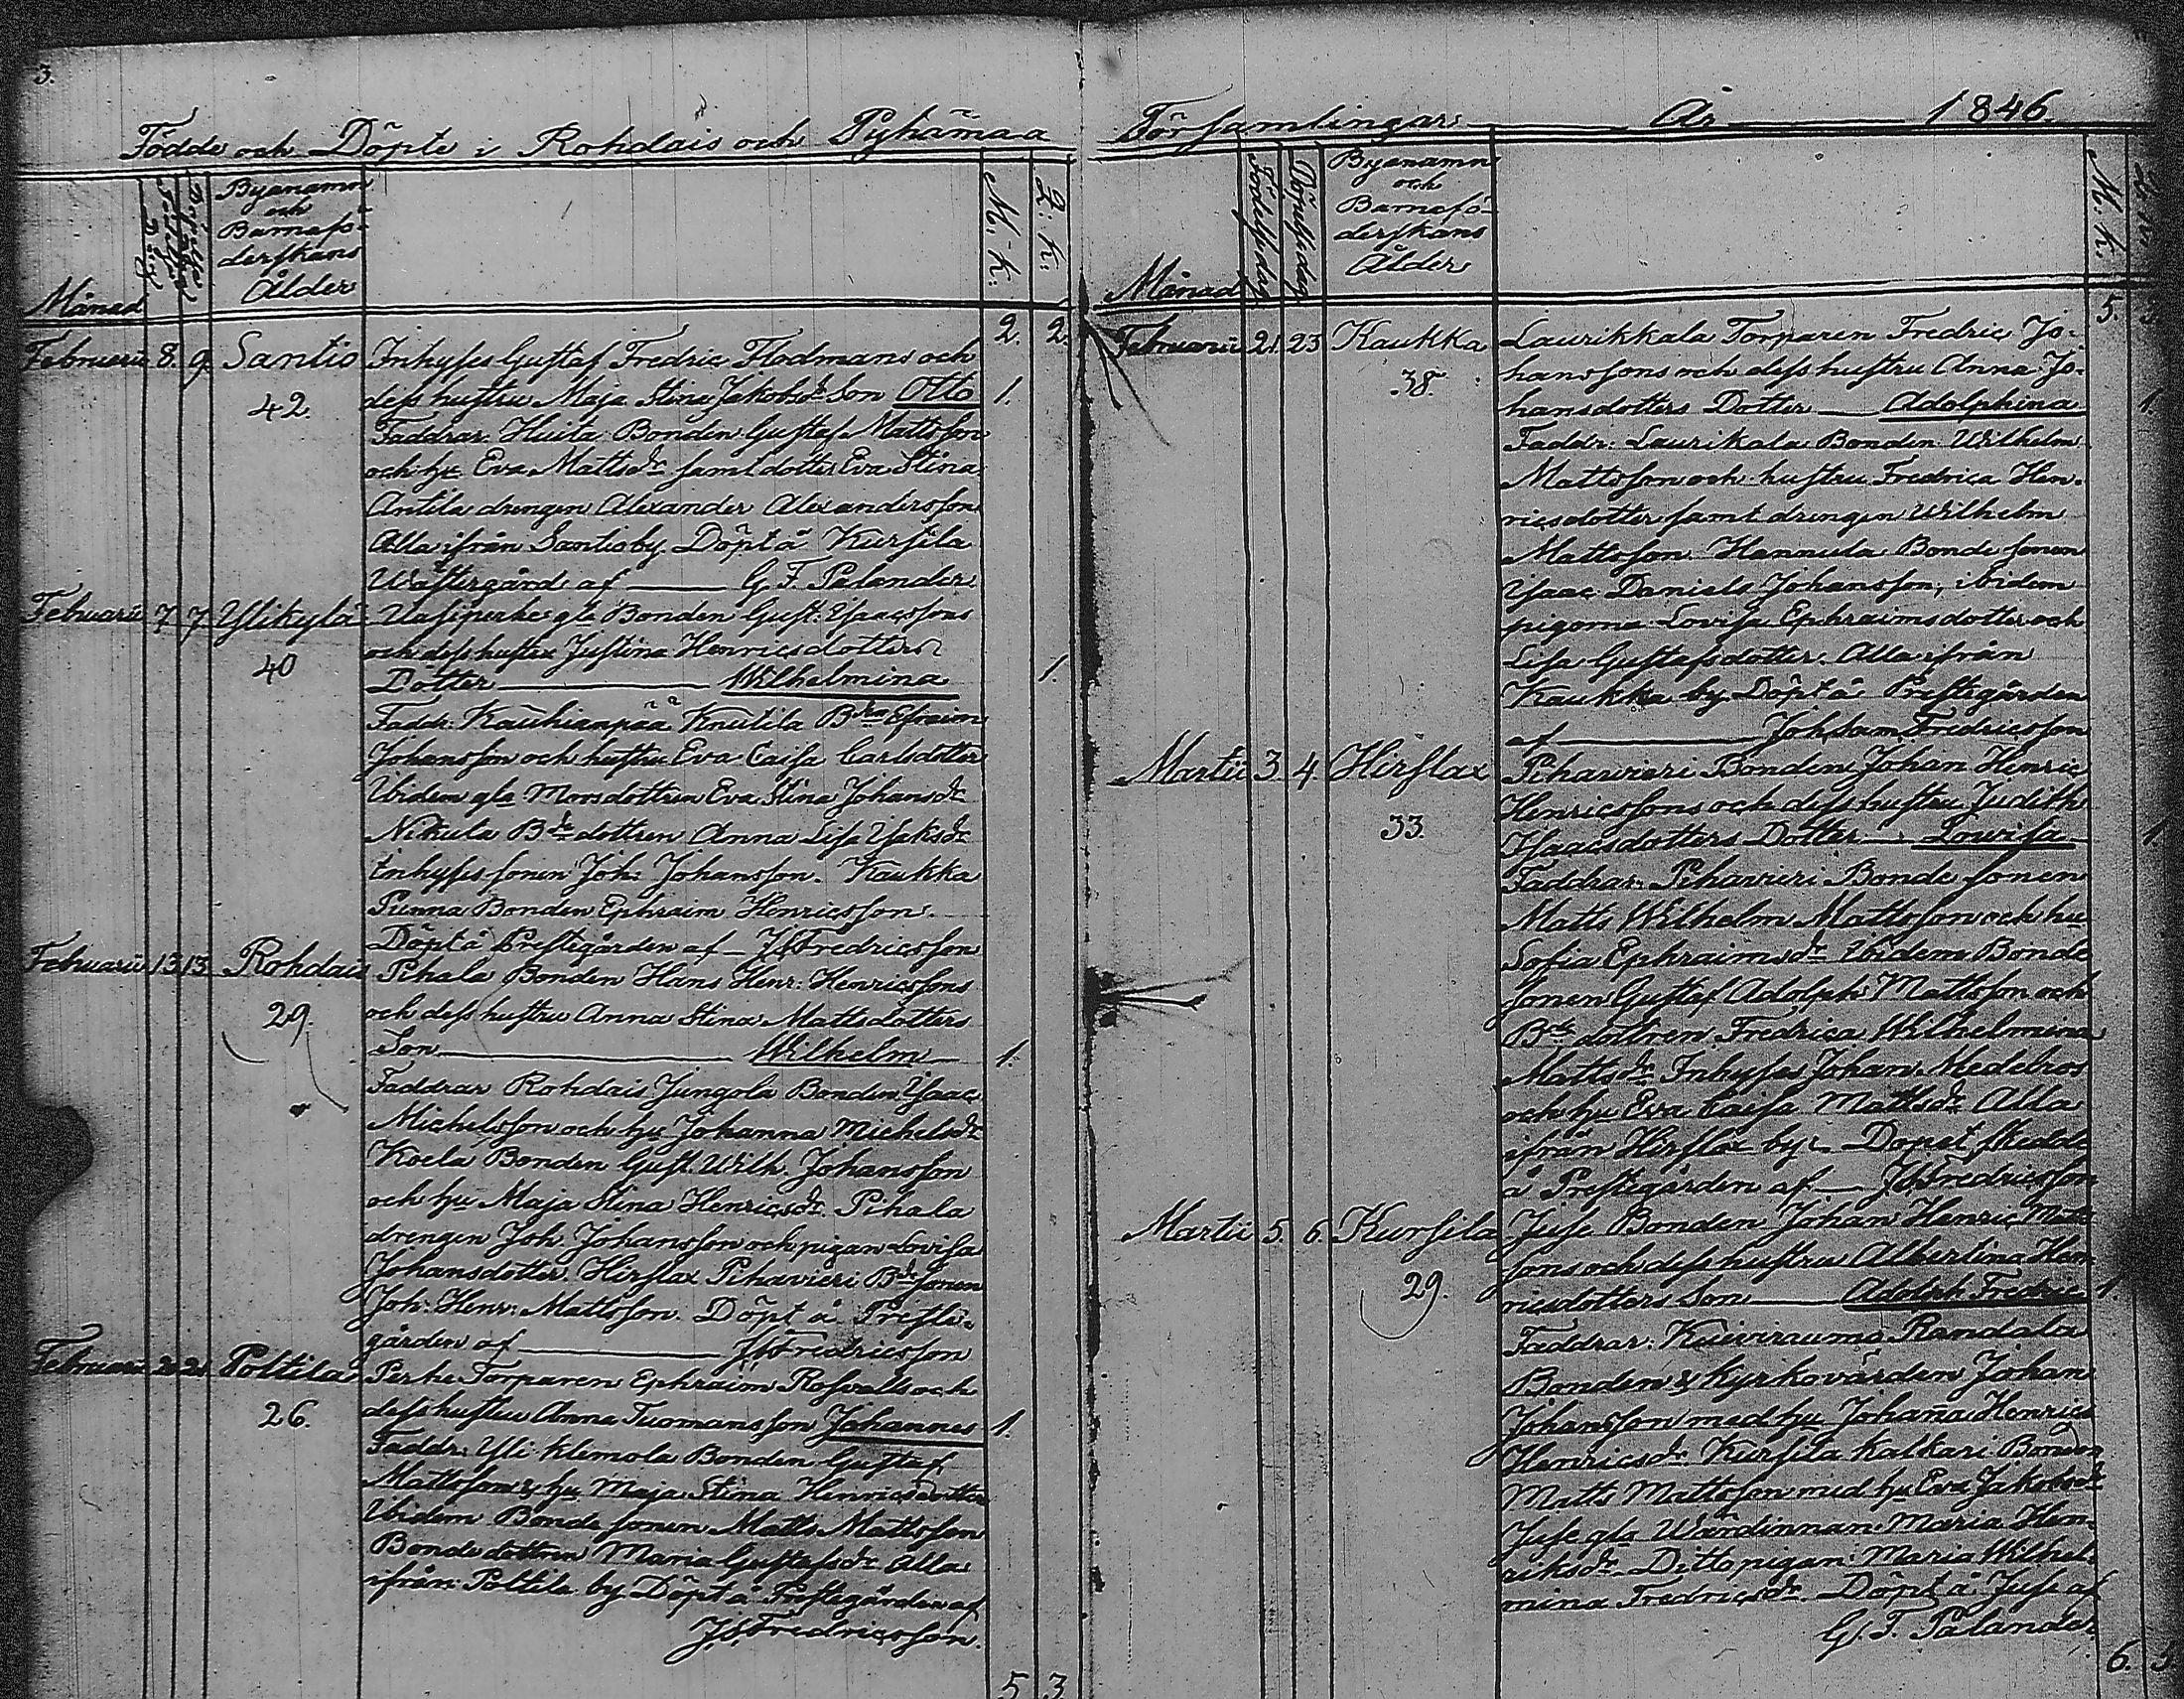 3.
Födde och Döpte i Rohdais och Pyhämaa
M. k:
Q: k:
Byanamn
och
Barnafö-
derskans
Ålder
Månad
2. 2.
Februarii 8. 9. Santio Inhyses Gustaf Fredric Flodmans och
42. dess hustru Maja Stina Jakobsdr Son Otto 1.
Faddrar: Huita Bonden Gustaf Mattsson
och hu Eva Mattsdr samt dotter Eva Stina
Antila drengen Alexander Alexandersson
Alla ifrån Santioby. Döpt å Kursila
Wästergård af — G. F. Palander
Februarii 7 7 Ylikylä Uasiperhe gle Bonden Gust: Isaacssons
40 och dess hustru Justina Henricsdotters
Dotter — Wilhelmina 1.
Faddr: Kauhianpää Knutila Bden Efraim
Johansson och hustru Eva Caisa Carlsdotter
Ibidem gla Morsdottren Eva Stina Johansdr
Nikula Bde dottren Anna Lisa Isaksdr
Inhyses sonen Joh: Johansson. Kaukka
Punna Bonden Ephraim Henricsson.
Döpt å Prestegården af — Fredricsson
Februarii 13 13 Rohdais Pihala Bonden Hans Henr: Henricssons
29. och dess hustru Anna Stina Mattsdotters
Son — Wilhelm 1.
Faddrar Rohdais Jungola Bonden Isaac
Michelsson och hu Johanna Michelsdr
Koela Bonden Gust. Wilh. Johansson
och hu Maja Stina Henricsdr. Pihala
drengen Joh Johansson och pigan Lovisa
Johansdotter. Hirslax Pihavieri Bde sonen
Joh: Henr: Mattsson. Döpt å Preste-
gården af — Fredricsson
Februarii 20 21 Poltila Perhe Torparen Ephraim Rosvalls och
26. dess hustru Anna Tuomans son Johannes 1.
Faddr: Yli Klemola Bonden Gustaf
Mattsson & hu Maja Stina Henricsdotter
Ibidem Bonde sonen Matts Mattsson
Bonde dottren Maria Gustafsdr Alla
ifrån Poltila by Döpt å Prestegården af
Fredricsson.
5 3
Församlingar — År — 1846.
M. k.
Födelsedag
Döpelsedag
Byanamn
och
Barnafö-
derskans
Ålder
Månad
5. 3.
Februarii 21. 23 Kaukka Laurikkala Torparen Fredric Jo-
38. hanssons och dess hustru Anna Jo-
hansdotters Dotter — Adolphina 1.
Faddr: Laurikala Bonden Wilhelm
Mattsson och hustru Fredrica Hen-
ricsdotter samt drengen Wilhelm
Mattsson. Hannula Bonde sonen
Isaac Daniels Johansson, ibidem
pigorna Lovisa Ephraimsdotter och
Lisa Gustafsdotter. Alla ifrån
Kaukka by Döpt å Prestegården
af — Joh Fredricsson
Martii 3 4 Hirslax Piharvieri Bonden Johan Henric
33. Henricssons och dess hustru Judith
Isaacsdotters Dotter — Lowisa 1
Faddrar: Piharvieri Bonde sonen
Matts Wilhelm Mattsson och hu
Sofia Ephraimsdr Ibidem Bonde
sonen Gustaf Adolph Mattsson och
Bde dottren Fredrica Wilhelmina
Mattsdr. Inhyses Johan Medelros
och hu Eva Caisa Mattsdr. Alla
ifrån Hirslax by. Dopet skedde
å Prestegården af — Fredricsson
Martii 5. 6. Kursila Juse Bonden Johan Henric Matts
29. sons och dess hustru Albertina Hen
ricsdotters Son — Adolph Fredric 1.
Faddrar: Kuiviraumo Randala
Bonden & Kyrkovärden Johan
Johansson med hu Johaña Henrics
Henricsdr. Kursila Kalkari Bonden
Matts Mattsson med hu Eva Jakobsdr
Juse gla Wärdinnan Maria Hen-
riksdr. Ditto pigan Maria Wilhel-
mina Fredricsdr. Döpt å Juse af
G. F. Palander
6. 5